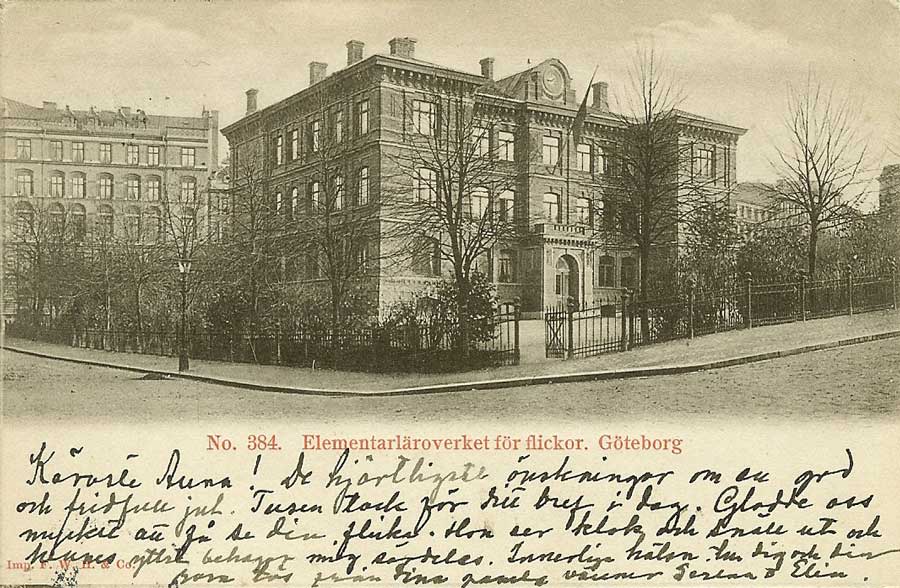 No. 384. Elementarläroverket för flickor. Göteborg
Käraste Anna! De hjärtligaste önskningar om en god
och fridfull jul. Tusen tack för ditt bref i dag. Gladde oss
mycket att få se din flicka. Hon ser klok och snäll ut och
hennes yttre behagar mig särdeles. Innerliga hälsn. till dig och din
Imp. F. W. H. & Co.
från dina gamla vänner o Elin.